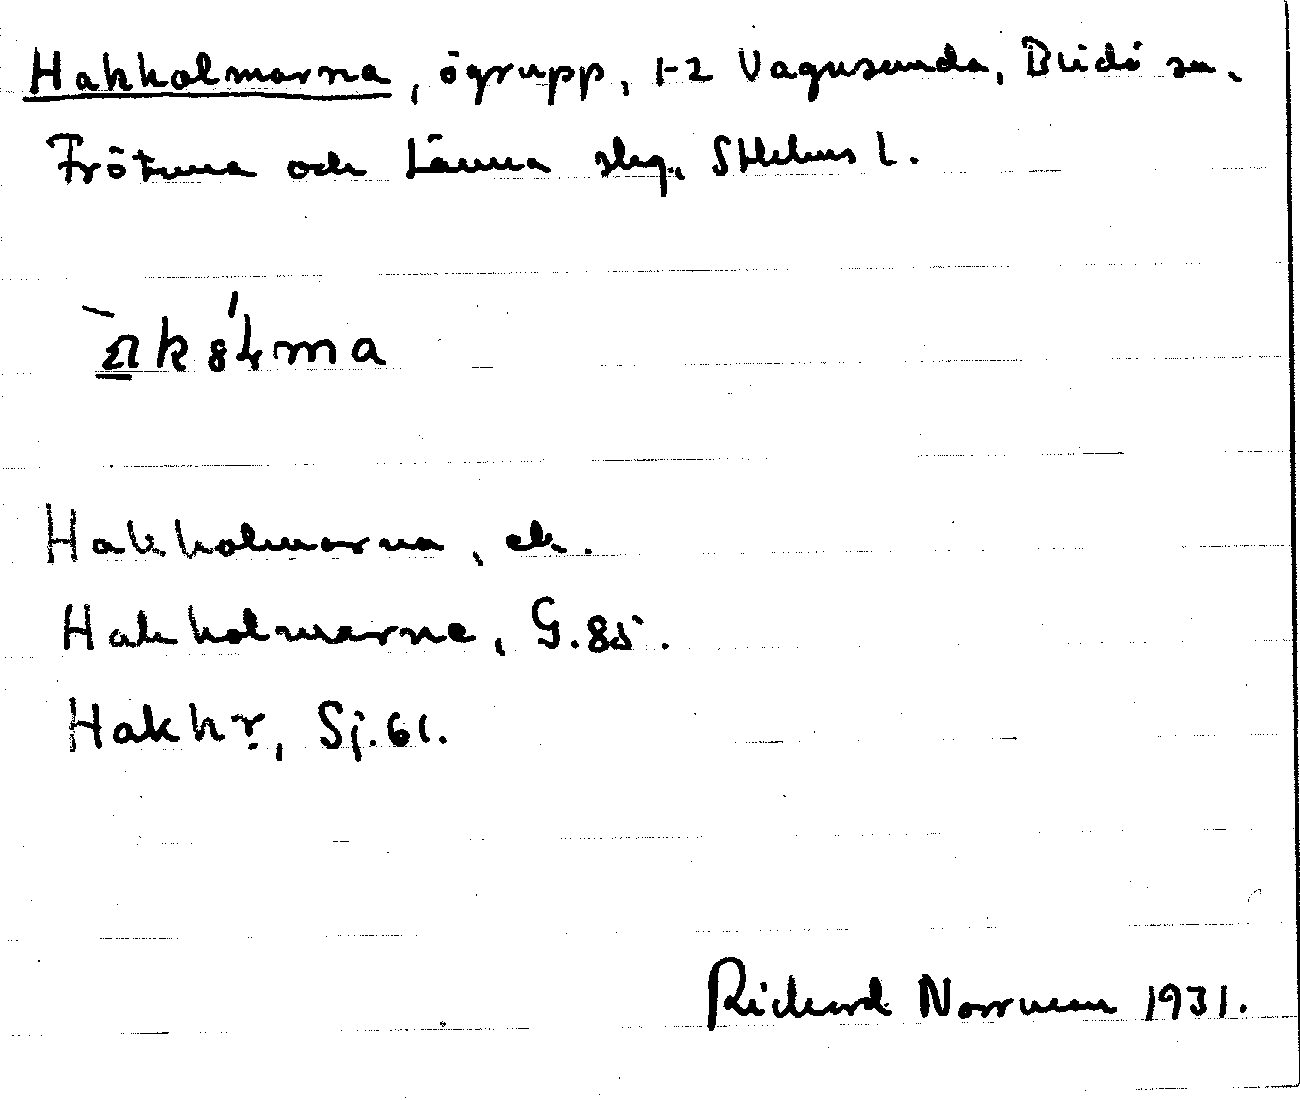 Hakholmarna, ögrupp, 1-2 Vagnsunda, Blidö sn.
Frötuna och Länna skg., Sthlms l.
Hakholmarna, ek.
Hakholmarne, G.85.
Hakhr, Sj.61.
Richard Norrman 1931.